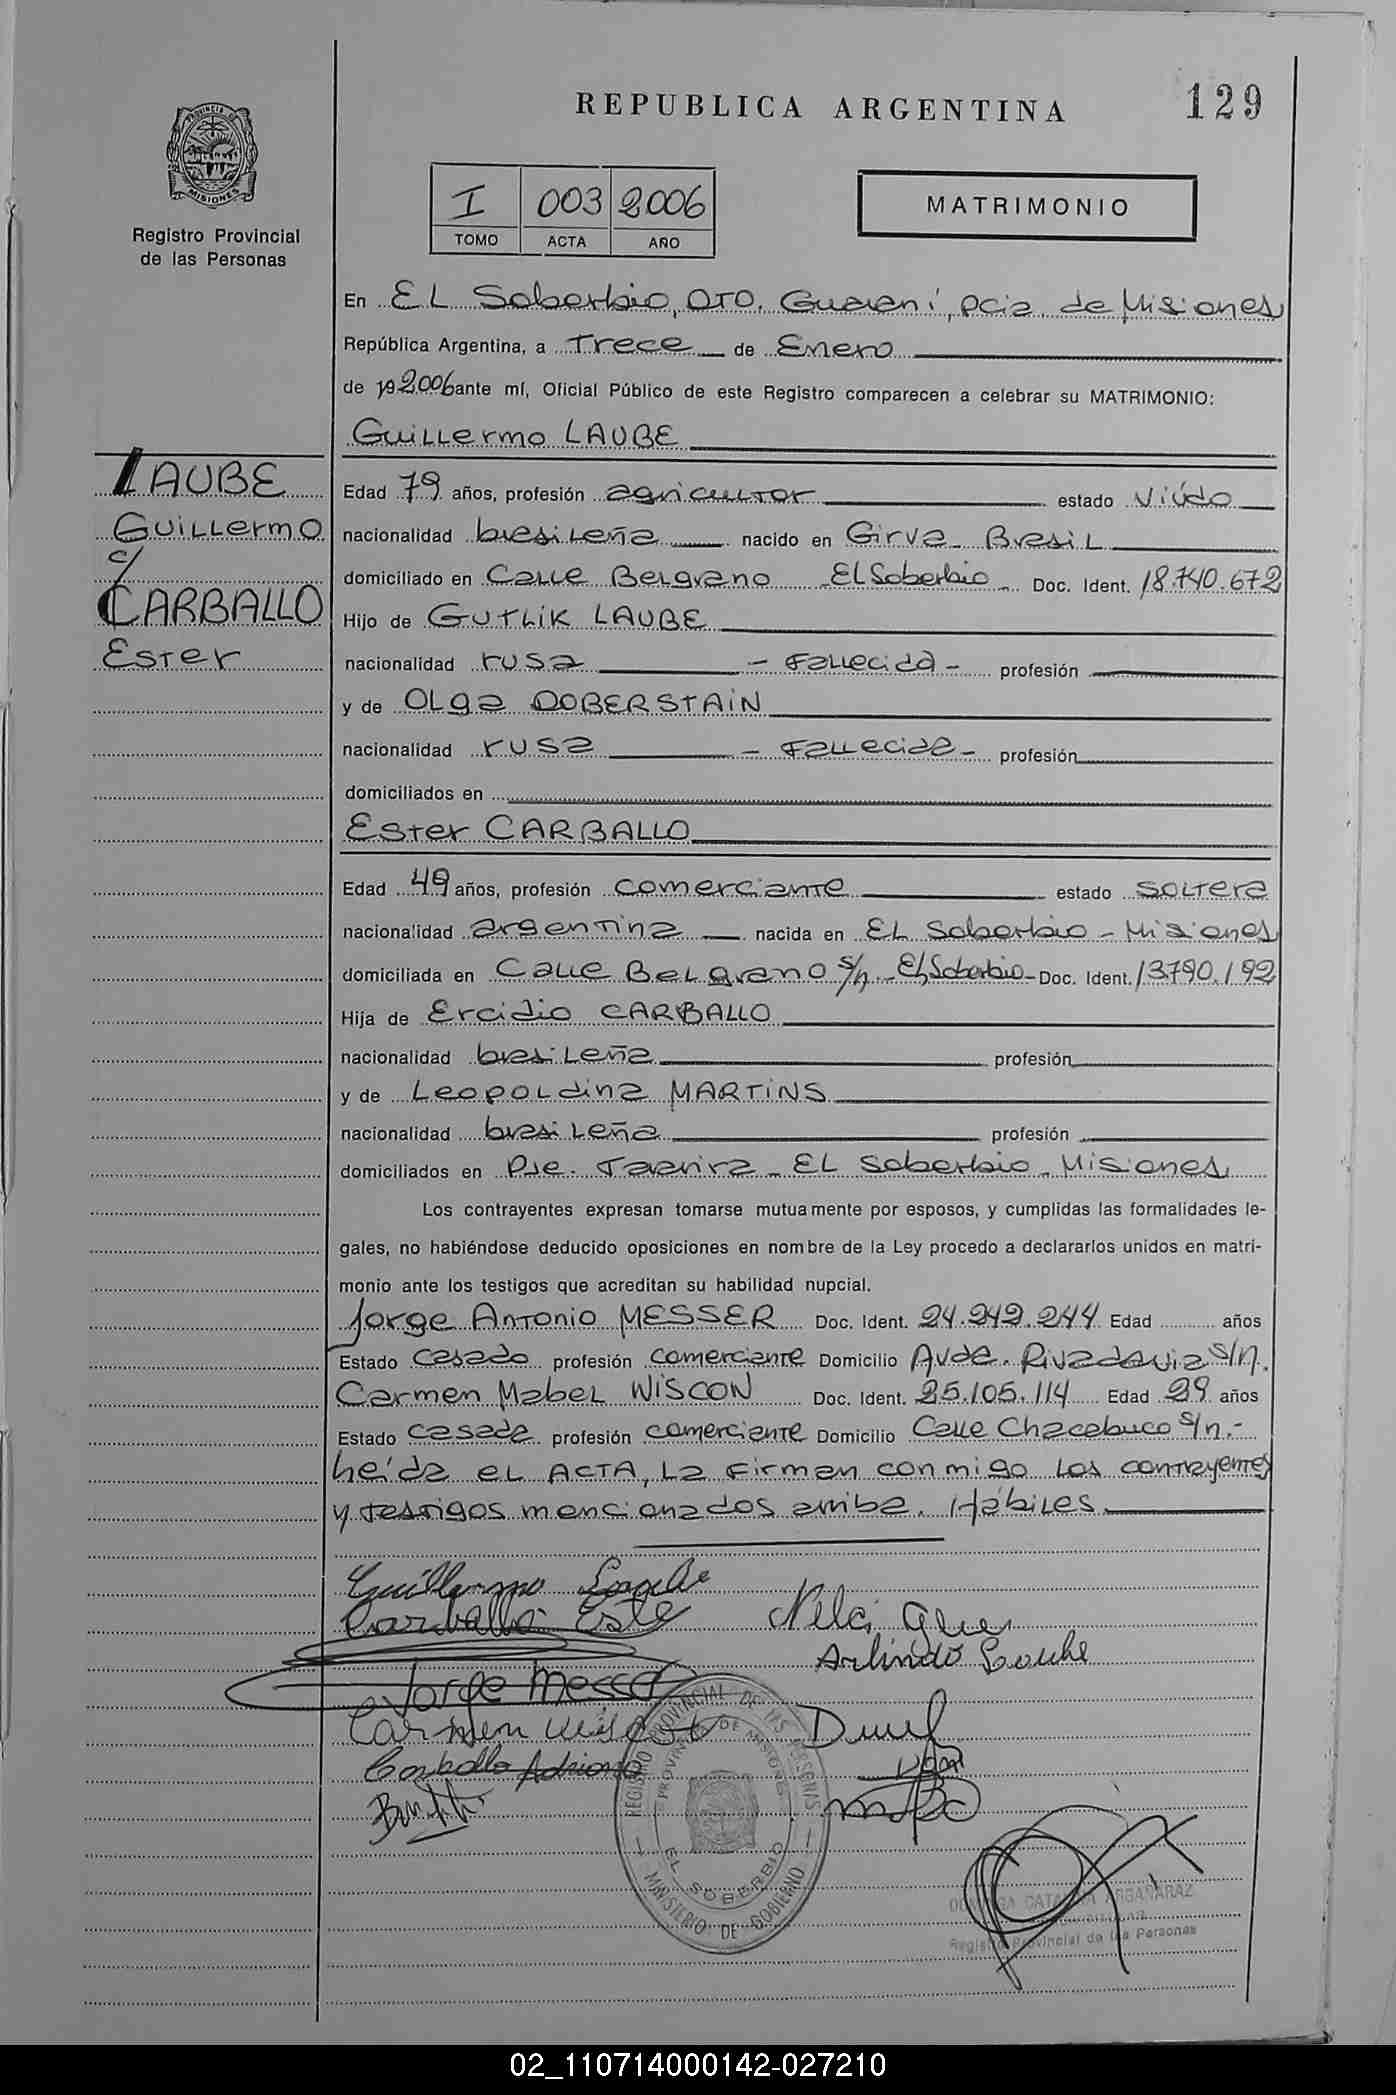 REPUBLICA ARGENTINA
129
PROVINCIA DE
MISIONES
Registro Provincial
de las Personas
I 003 2006
TOMO ACTA AÑO
MATRIMONIO
En EL Soberbio, DTO. Guaraní, pcia. de Misiones
República Argentina, a Trece de Enero
de 19 2006 ante mí, Oficial Público de este Registro comparecen a celebrar su MATRIMONIO:
Guillermo LAUBE
LAUBE
Guillermo
c/
CARBALLO
Ester
Edad 79 años, profesión agricultor estado viúdo
nacionalidad brasileña nacido en Girva - Brasil
domiciliado en Calle Belgrano El Soberbio - Doc. Ident. 18.740.672
Hijo de GUTLIK LAUBE
nacionalidad rusa - Fallecido - profesión
y de Olga DOBERSTAIN
nacionalidad rusa - Fallecida - profesión
domiciliados en
Ester CARBALLO
Edad 49 años, profesión comerciante estado soltera
nacionalidad argentina nacida en EL Soberbio - Misiones
domiciliada en Calle Belgrano s/n - El Soberbio - Doc. Ident. 13.790.192
Hija de Ercidio CARBALLO
nacionalidad brasileña profesión
y de Leopoldina MARTINS
nacionalidad brasileña profesión
domiciliados en Pje. - EL Soberbio - Misiones
Los contrayentes expresan tomarse mutuamente por esposos, y cumplidas las formalidades le-
gales, no habiéndose deducido oposiciones en nombre de la Ley procedo a declararlos unidos en matri-
monio ante los testigos que acreditan su habilidad nupcial.
Jorge Antonio MESSER Doc. Ident. 24.242.244 Edad años
Estado casado profesión comerciante Domicilio Avda. Rivadavia s/n.
Carmen Mabel WISCON Doc. Ident. 25.105.114 Edad 29 años
Estado casada profesión comerciante Domicilio Calle Chacabuco s/n.-
Leída el ACTA, la firman conmigo los contrayentes
y testigos mencionados arriba. Hábiles.
Guillermo Laube
Carballo Este
Nelci
Arlindo Laube
Jorge Messer
Carmen
Carballo Adriana
REGISTRO PROVINCIAL DE LAS PERSONAS
PROVINCIA DE MISIONES
EL SOBERBIO
MINISTERIO DE GOBIERNO
Registro Provincial de las Personas
02_110714000142-027210